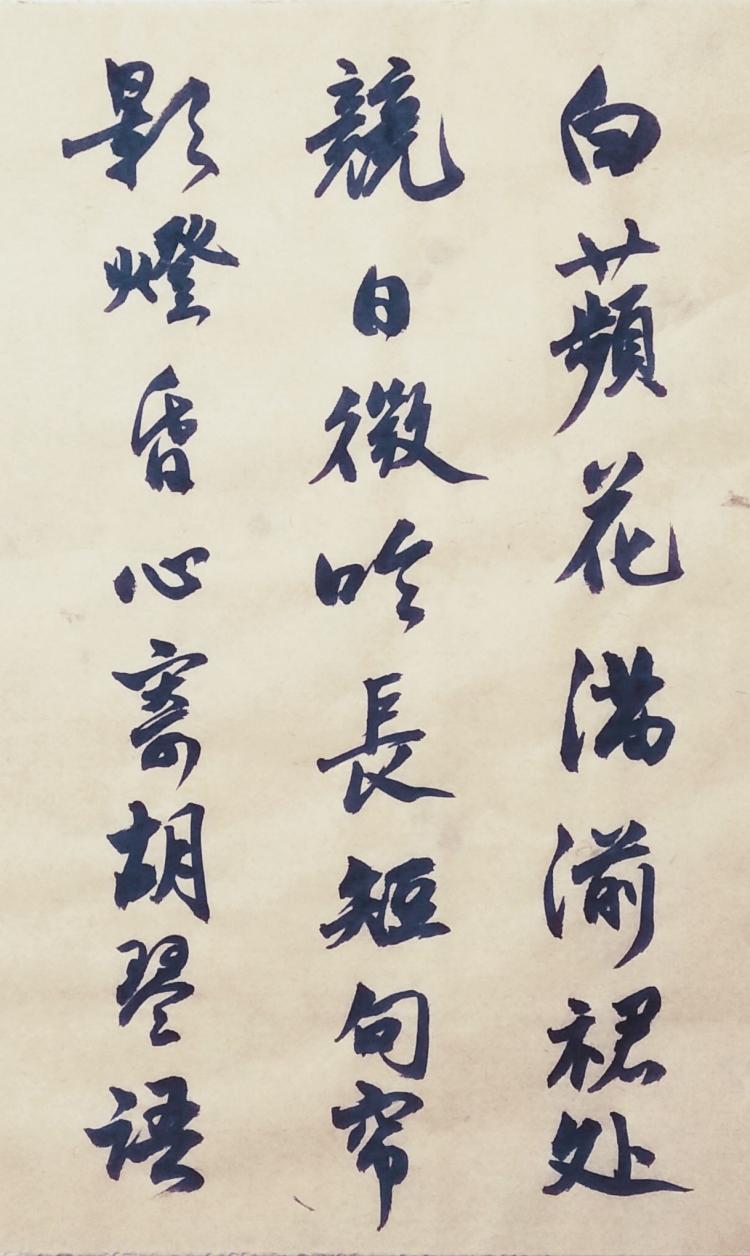 白蘋花满湔裙处
競日微吟長短句帘
影燈昏心寄胡琴語